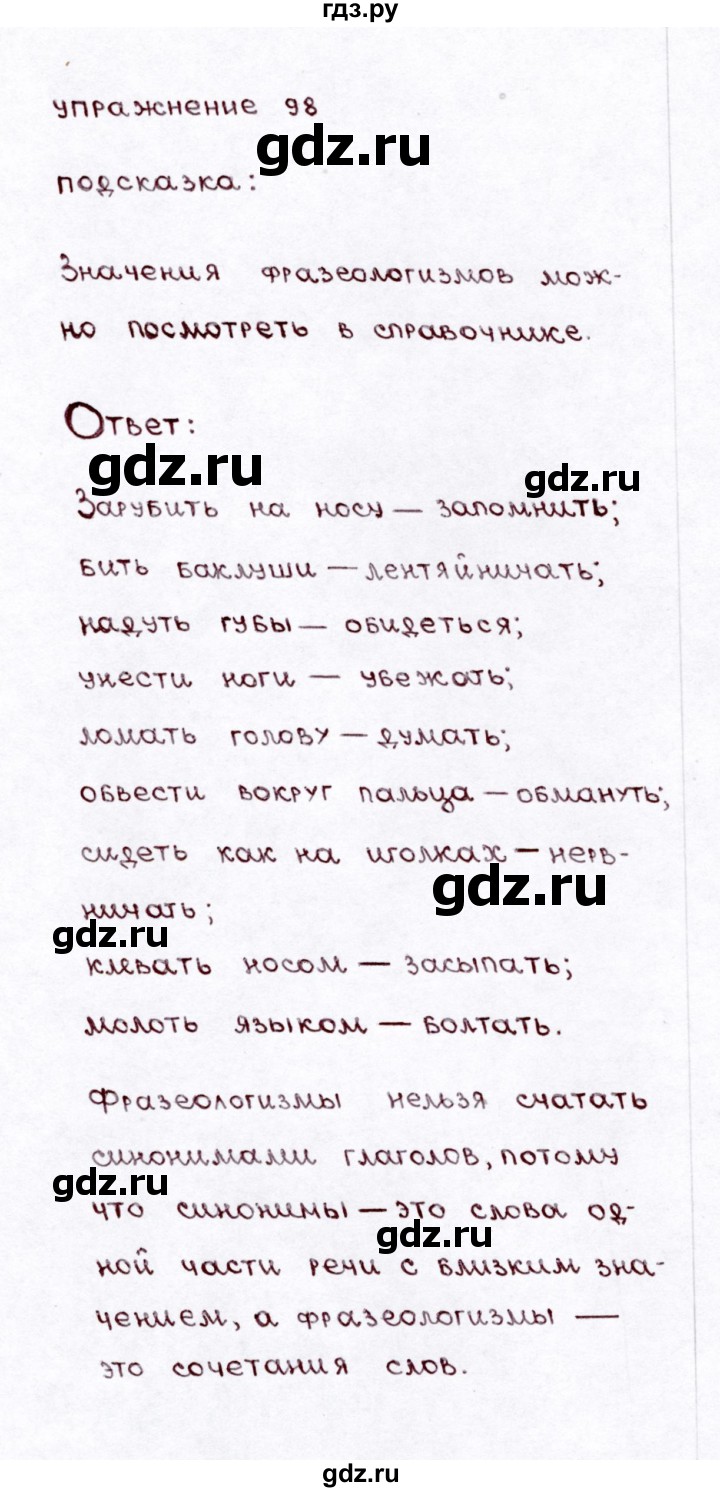 гдз.ру
упражнение 98
gdz.ru
подсказка:
Значения фразеологизмов мож-
но посмотреть в справочнике.
Ответ:
gdz.ru
gdz.ru
Зарубить на носу — запомнить;
бить баклуши — лентяйничать;
надуть губы — обидеться;
унести ноги — убежать;
ломать голову — думать;
обвести вокруг пальца — обмануть;
сидеть как на иголках — нерв-
gdz.ru
ничать;
gdz.ru
клевать носом — засыпать;
молоть языком — болтать.
Фразеологизмы нельзя считать
синонимами глаголов, потому
gdz.ru
что синонимы — это слова од-
gdz.ru
ной части речи с близким зна-
чением, а фразеологизмы —
это сочетания слов.
gdz.ru